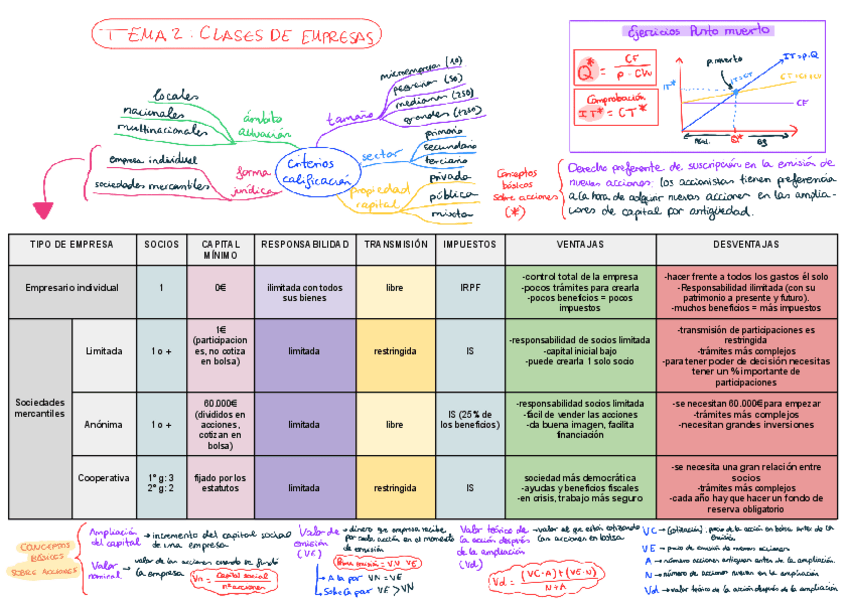 TEMA 2. CLASES DE EMPRESAS
Ejercicios Punto muerto
Q* = CF / P - CVu
Comprobación
IT* = CT*
P. muerto
IT = P.Q
IT = CT
CF
IT*
Q*
Criterios
calificación
ámbito
actuación
locales
nacionales
multinacionales
forma
jurídica
empresa individual
sociedades mercantiles
tamaño
microempresas (10)
pequeñas (50)
medianas (250)
grandes (+250)
sector
primario
secundario
terciario
propiedad
capital
privada
pública
mixta
Conceptos
básicos
sobre acciones
(*)
Derecho preferente de suscripción en la emisión de
nuevas acciones: los accionistas tienen preferencia
a la hora de adquirir nuevas acciones en las amplia-
ciones de capital por antigüedad.
TIPO DE EMPRESA SOCIOS CAPITAL MÍNIMO RESPONSABILIDAD TRANSMISIÓN IMPUESTOS VENTAJAS DESVENTAJAS
Empresario individual
1
0€
ilimitada con todos
sus bienes
libre
IRPF
-control total de la empresa
-pocos trámites para crearla
-pocos beneficios = pocos
impuestos
-hacer frente a todos los gastos él solo
-Responsabilidad ilimitada (con su
patrimonio a presente y futuro).
-muchos beneficios = más impuestos
Sociedades
mercantiles
Limitada
1 o +
1€
(participacion
es, no cotiza
en bolsa)
limitada
restringida
IS
-responsabilidad de socios limitada
-capital inicial bajo
-puede crearla 1 solo socio
-transmisión de participaciones es
restringida
-trámites más complejos
-para tener poder de decisión necesitas
tener un % importante de
participaciones
Anónima
1 o +
60.000€
(divididos en
acciones,
cotizan en
bolsa)
limitada
libre
IS (25% de
los beneficios)
-responsabilidad socios limitada
-fácil de vender las acciones
-da buena imagen, facilita
financiación
-se necesitan 60.000€ para empezar
-trámites más complejos
-necesitan grandes inversiones
Cooperativa
1º g: 3
2º g: 2
fijado por los
estatutos
limitada
restringida
IS
sociedad más democrática
-ayudas y beneficios fiscales
-en crisis, trabajo más seguro
-se necesita una gran relación entre
socios
-trámites más complejos
-cada año hay que hacer un fondo de
reserva obligatorio
CONCEPTOS
BÁSICOS
SOBRE ACCIONES
Ampliación
del capital
→ incremento del capital social
de una empresa
Valor
nominal
→ valor de las acciones cuando se fundó
la empresa
Vn = capital social / nº acciones
Valor de
emisión
(VE)
→ dinero que empresa recibe
por cada acción en el momento
de emisión
Prima emisión = VN - VE
→ A la par VN = VE
→ Sobre la par VE > VN
Valor teórico de
la acción después
de la ampliación
(Vd)
→ valor al que están cotizando
las acciones en bolsa
Vd = (VC·A) + (VE·N) / N+A
VC → (cotización), precio de la acción en bolsa antes de la
emisión
VE → precio de emisión de nuevas acciones
A → número acciones antiguas antes de la ampliación.
N → número de acciones nuevas en la ampliación
Vd → valor teórico de la acción después de la ampliación